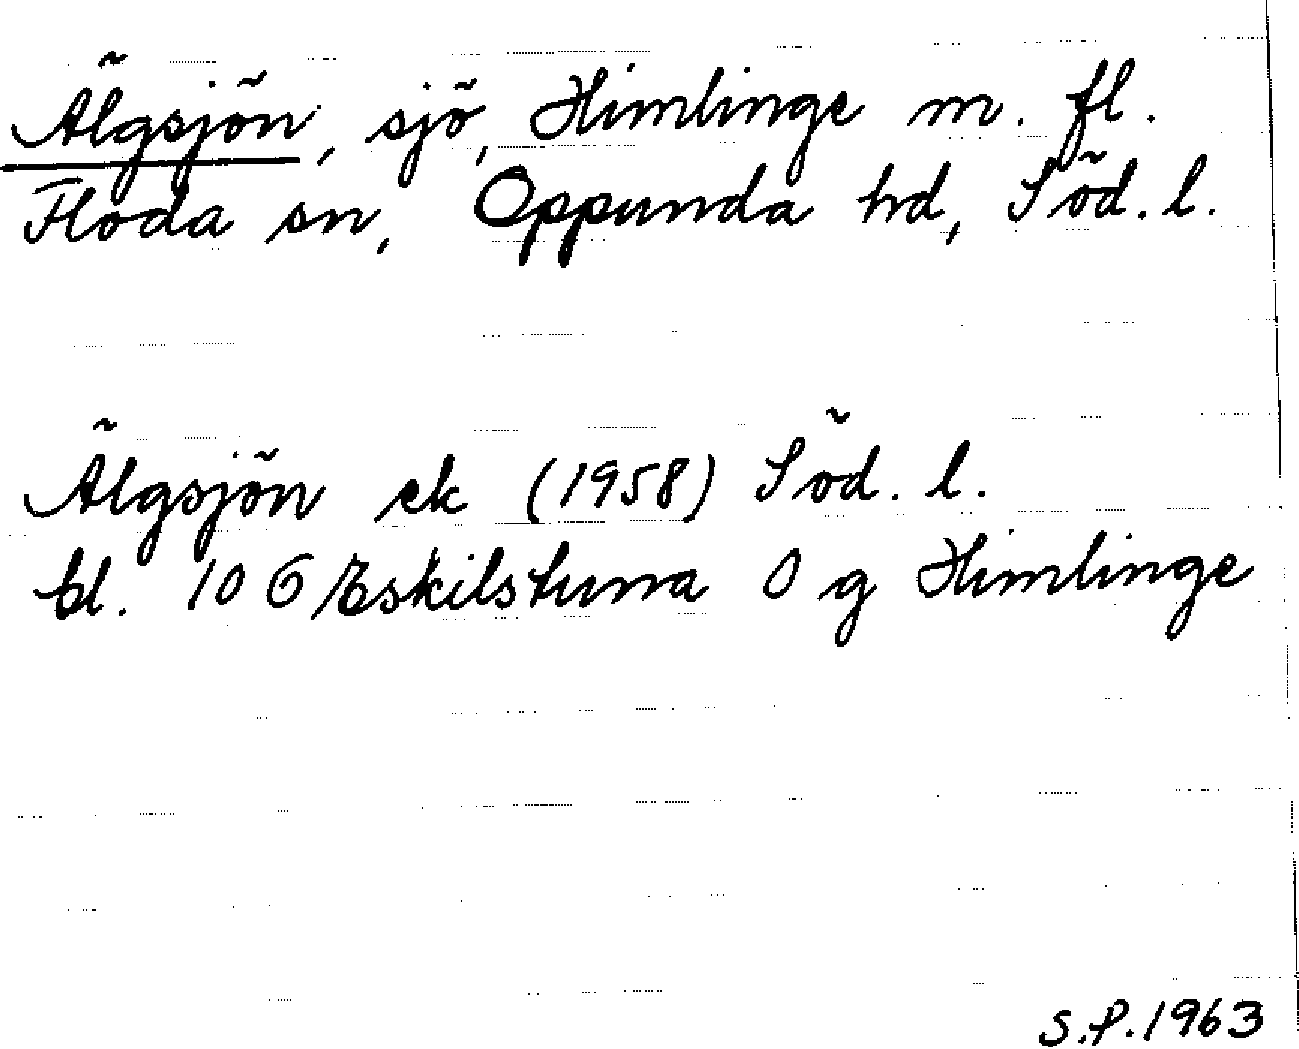 Älgsjön, sjö, Himlinge m. fl.
Floda sn, Oppunda hd, Söd. l.
Älgsjön ek (1958) Söd. l.
bl. 10 G Eskilstuna 0 g Himlinge
S.P. 1963